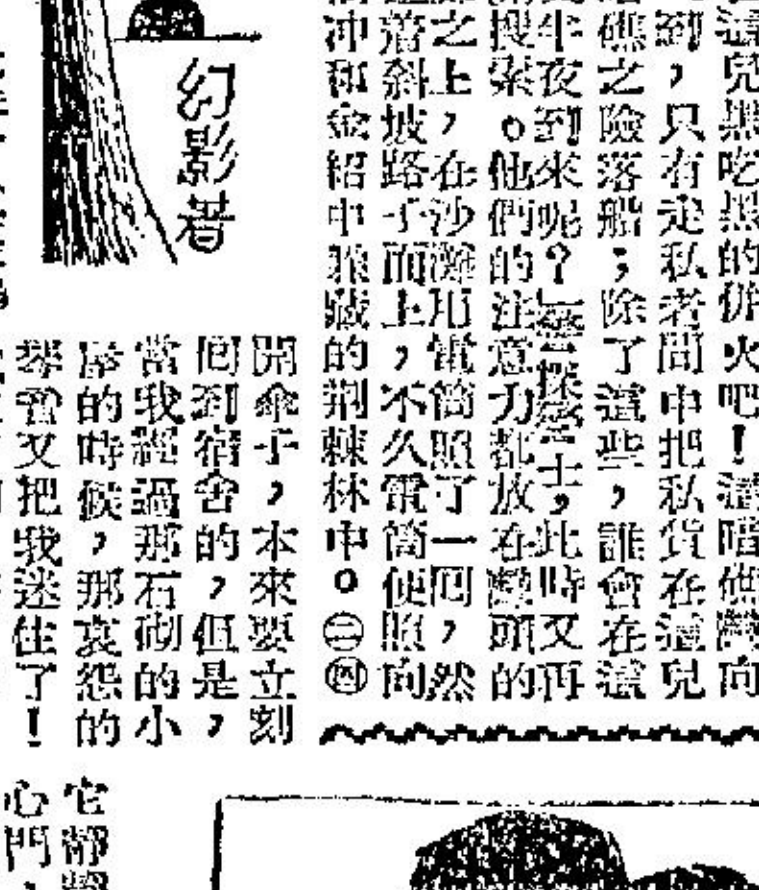 這兒黑吃黑的併火吧!這暗礁灣向
到,只有走私者間中把私貨在這兒
礁之險落船;除了這些,誰會在這
半夜到來呢?士,此時又再
搜索。他們的注意力都放在灘頭的
之上,在沙灘用電筒照了一囘,然
着斜坡路子而上,不久電筒便照向
冲和金紹申匿藏的荆棘林中。㊁㊃
幻影著
開傘子,本來要立刻
囘到宿舍的,但是,
當我經過那石砌的小
屋的時候,那哀怨的
琴音又把我迷住了!
它靜
心門